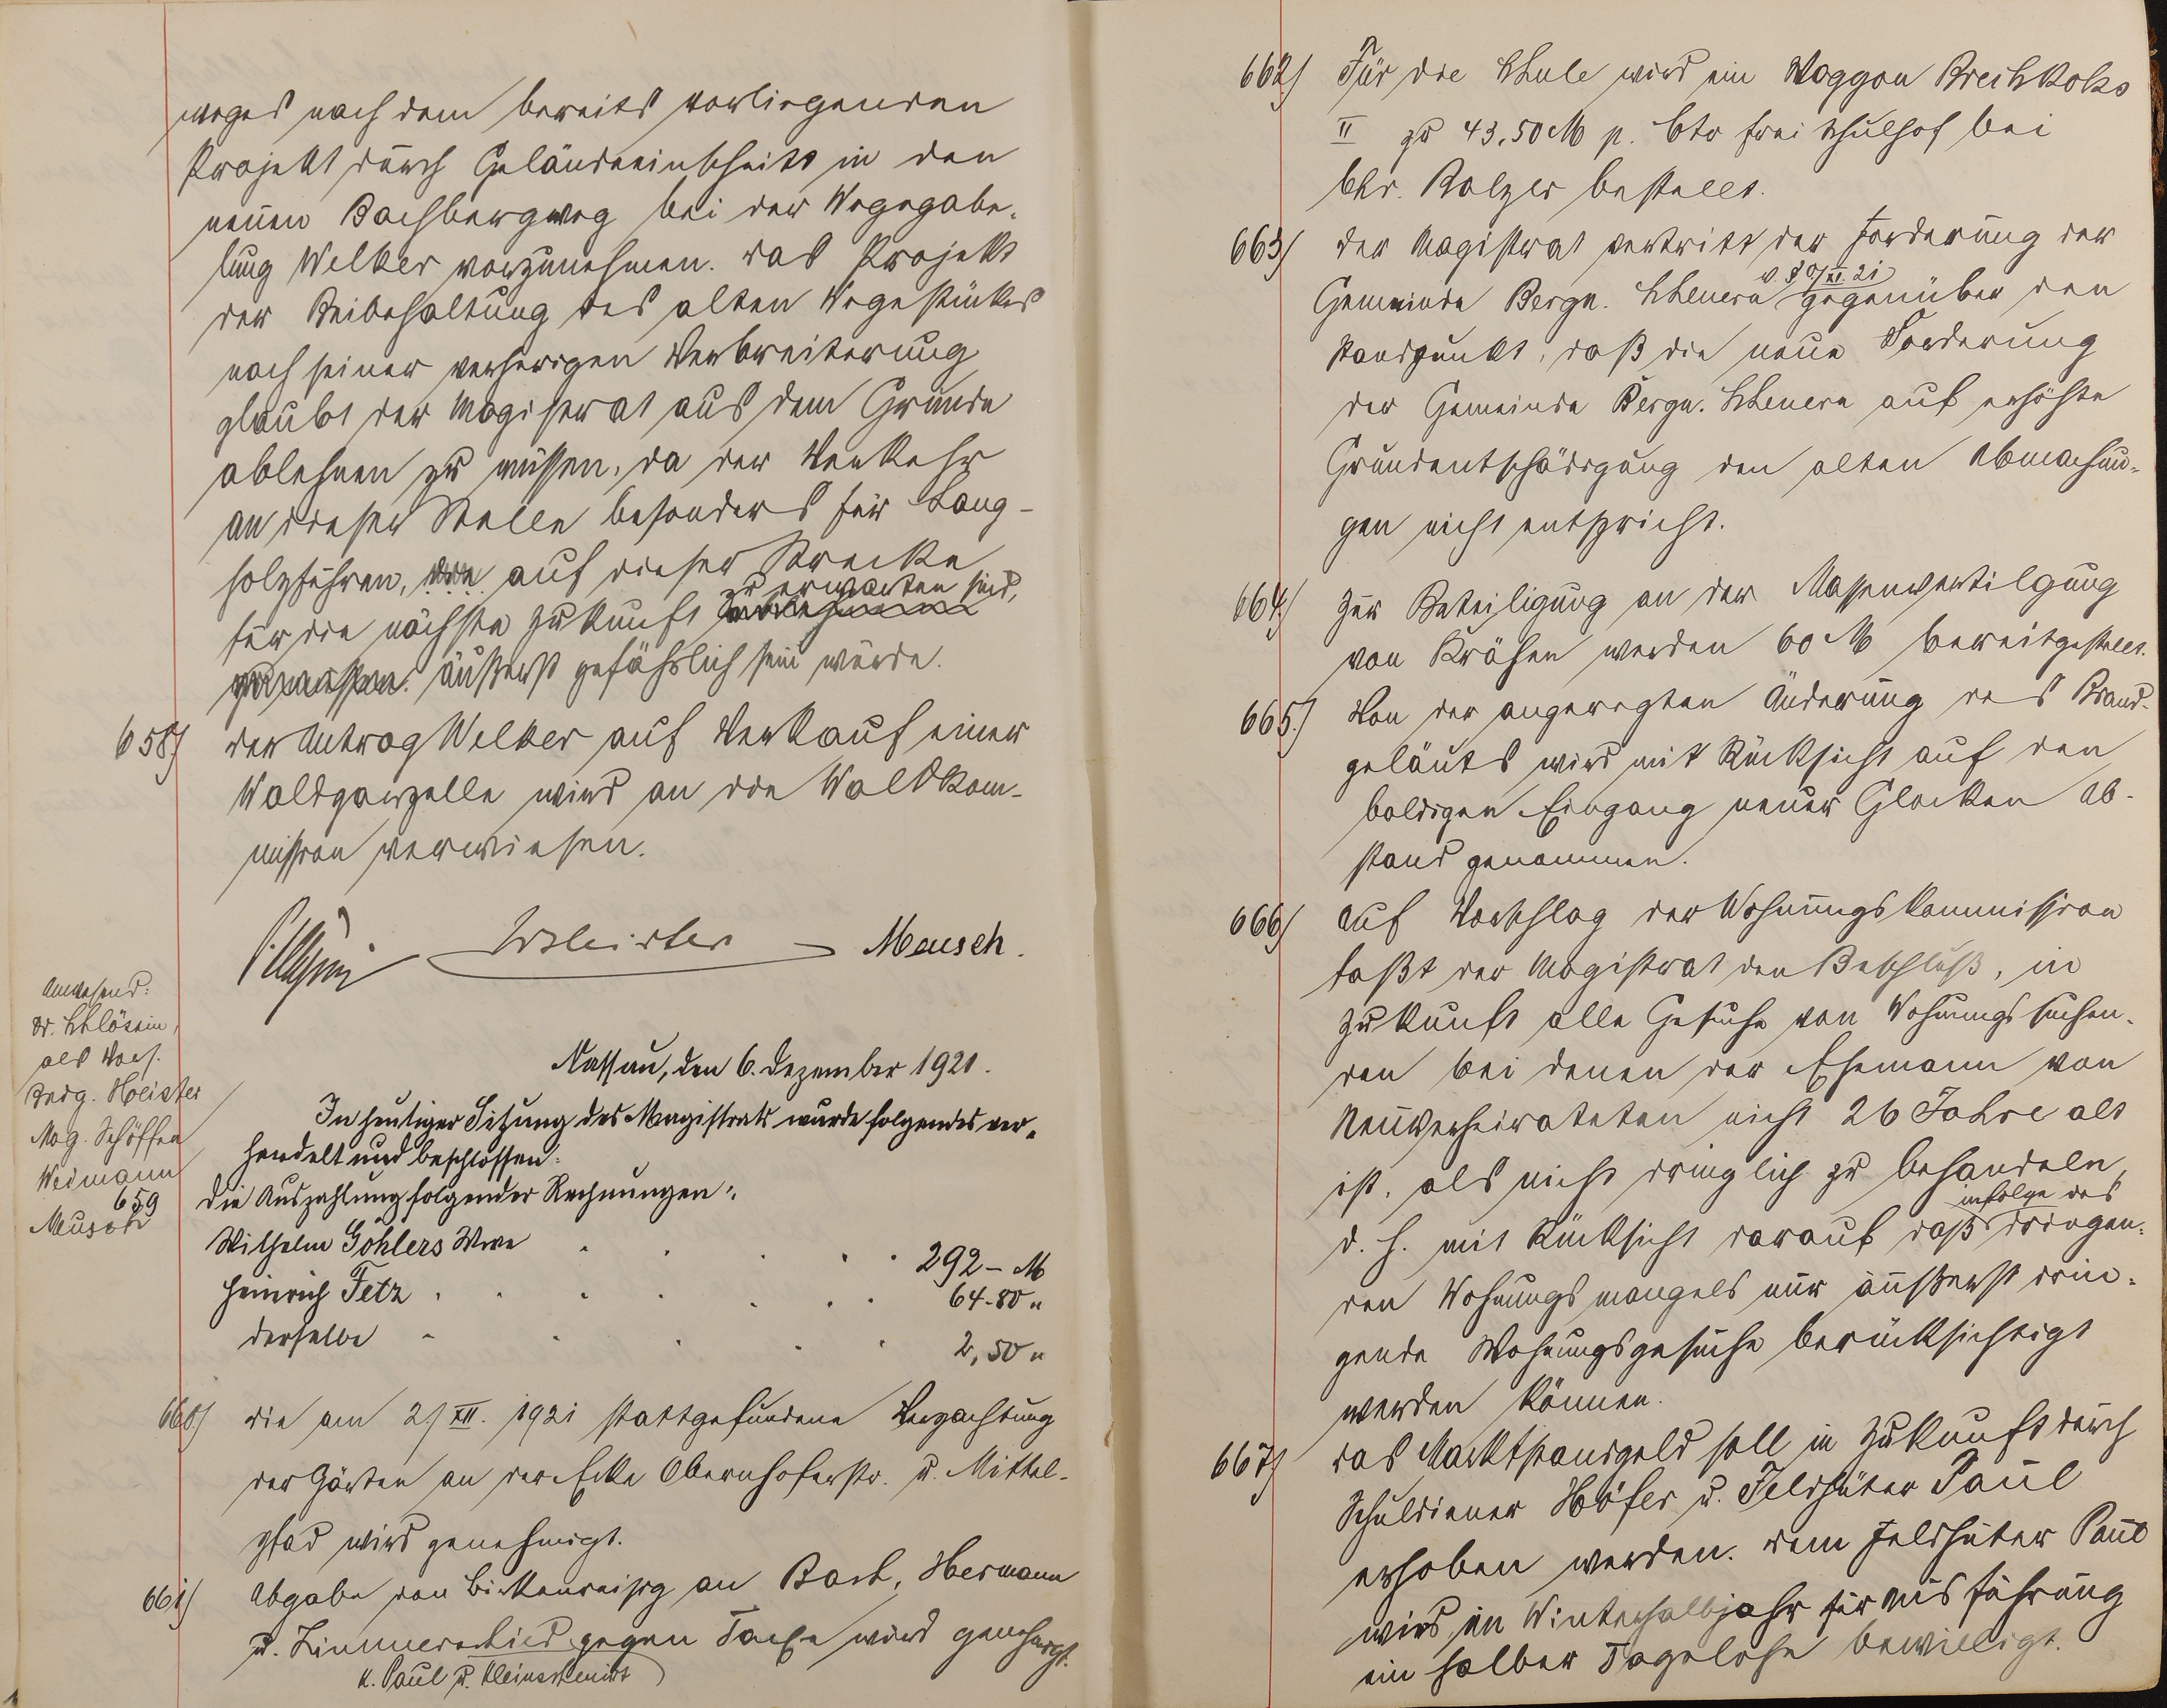 weges nach dem bereits vorliegenden
Projekt durch Geländeeinschnitt in den
neuen Bachbergweg bei der Wegegabe-
lung Welker vorzunehmen. Das Projekt
der Beibehaltung des alten Wegestückes
nach seiner vorherigen Verbreiterung
glaubt der Magistrat aus dem Grunde
ablehnen zu müssen, da der Verkehr
an dieser Stelle besonders für Lang-
holzfuhren, die auf dieser Strecke
zu erwarten sind,
für die nächste Zukunft
äußerst gefährlich sein würde.
658) Der Antrag Welker auf Verkauf einer
Waldparzelle wird an die Waldkom-
mission verwiesen.
Meusch.
Anwesend:
Dr. Schlösin,
als Vors.
Beig. Heister
Mag. Schöffen
Weimann
Meusch
Nassau, den 6. Dezember 1921.
In heutiger Sitzung des Magistrats wurde folgendes ver-
handelt und beschlossen:
659 Die Auszahlung folgender Rechnungen:
Wilhelm Göhlers Wwe 292 – M
Heinrich Fetz 64.80 "
derselbe 2,50 "
660) Die am 2/XII. 1921 stattgefundene Verpachtung
der Gärten an der Ecke Obernhoferstr. u. Mittel-
pfad wird genehmigt.
661) Abgabe von Birkenreisig an Bach, Hermann
u. Zimmerschied gegen Taxe wird genehmigt.
u. Paul u. Kleinschmidt
662) Für die Schule wird ein Waggon Brechkoks
II zu 43,50 M p. Ctr frei Schulhof bei
Chr. Balzer bestellt.
663) Der Magistrat vertritt der Forderung der
v. 30/XI. 21
Gemeinde Bergn. Scheuern gegenüber den
Standpunkt, daß die neue Forderung
der Gemeinde Bergn. Scheuern auf erhöhte
Grundentschädigung den alten Abmachun-
gen nicht entspricht.
664) Zur Beteiligung an der Massenvertilgung
von Krähen werden 60 M bereitgestellt.
665.) Von der angeregten Änderung des Brand-
geläuts wird mit Rücksicht auf den
baldigen Eingang neuer Glocken Ab-
stand genommen.
666) Auf Vorschlag der Wohnungskommission
faßt der Magistrat den Beschluß, in
Zukunft alle Gesuche von Wohnungssuchen-
den bei denen der Ehemann von
Neuverheirateten nicht 26 Jahre alt
ist, als nicht dringlich zu behandeln,
infolge des
d. h. mit Rücksicht darauf daß dringen-
den Wohnungsmangels nur äußerst drin-
gende Wohnungsgesuche berücksichtigt
werden können.
667) Das Marktstandgeld soll in Zukunft durch
Schuldiener Höfer u. Feldhüter Paul
erhoben werden. Dem Feldhüter Paul
wird im Winterhalbjahr für Ausführung
ein halber Tagelohn bewilligt.